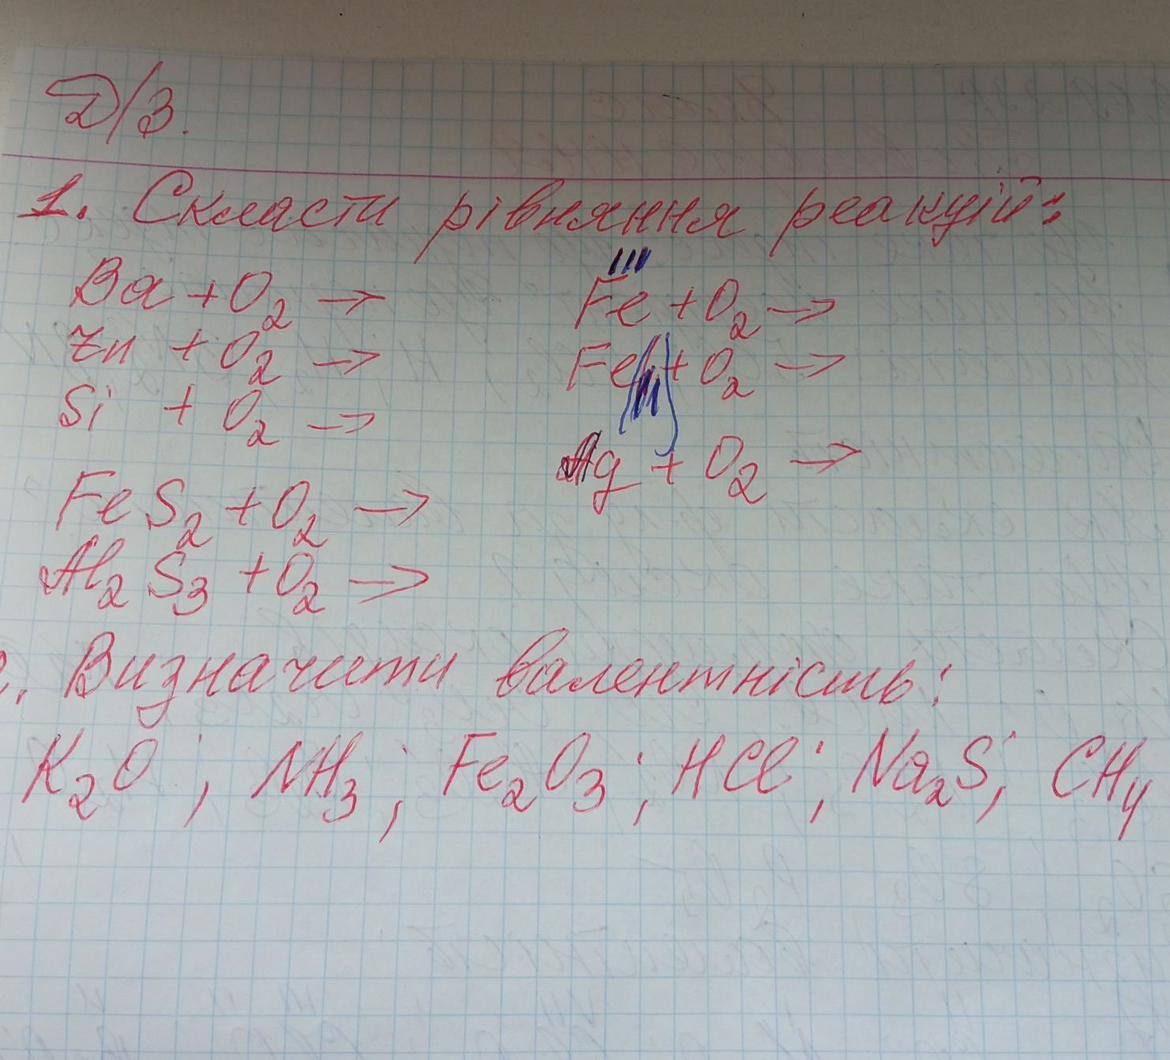 Д/З.
1. Скласти рівняння реакцій:
Ba + O₂ →
Zn + O₂ →
Si + O₂ →
FeS₂ + O₂ →
Al₂S₃ + O₂ →
III
Fe + O₂ →
Fe(II) + O₂ →
Ag + O₂ →
. Визначити валентність:
K₂O ; NH₃ ; Fe₂O₃ ; HCl ; Na₂S ; CH₄